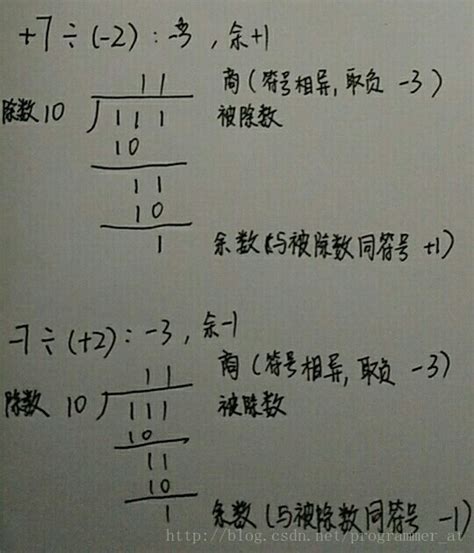 +7÷(-2):-3,余+1
11 商(符号相异,取负 -3)
除数 10 111 被除数
10
11
10
1 余数(与被除数同符号 +1)
-7÷(+2):-3,余-1
11 商(符号相异,取负 -3)
除数 10 111 被除数
10
11
10
1 余数(与被除数同符号 -1)
http://blog.csdn.net/programmer_at